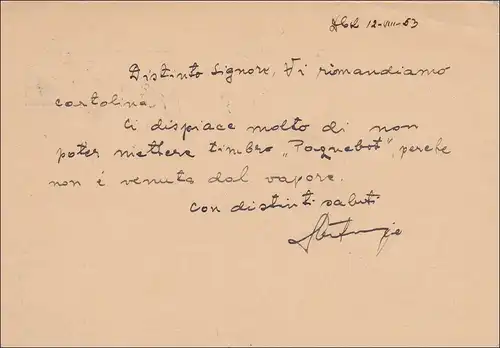 12-VIII-53
Distinto Signore, Vi rimandiamo
cartolina.
Ci dispiace molto di non
poter mettere timbro „Paquebot", perche
non é venuta dal vapore.
con distinti saluti